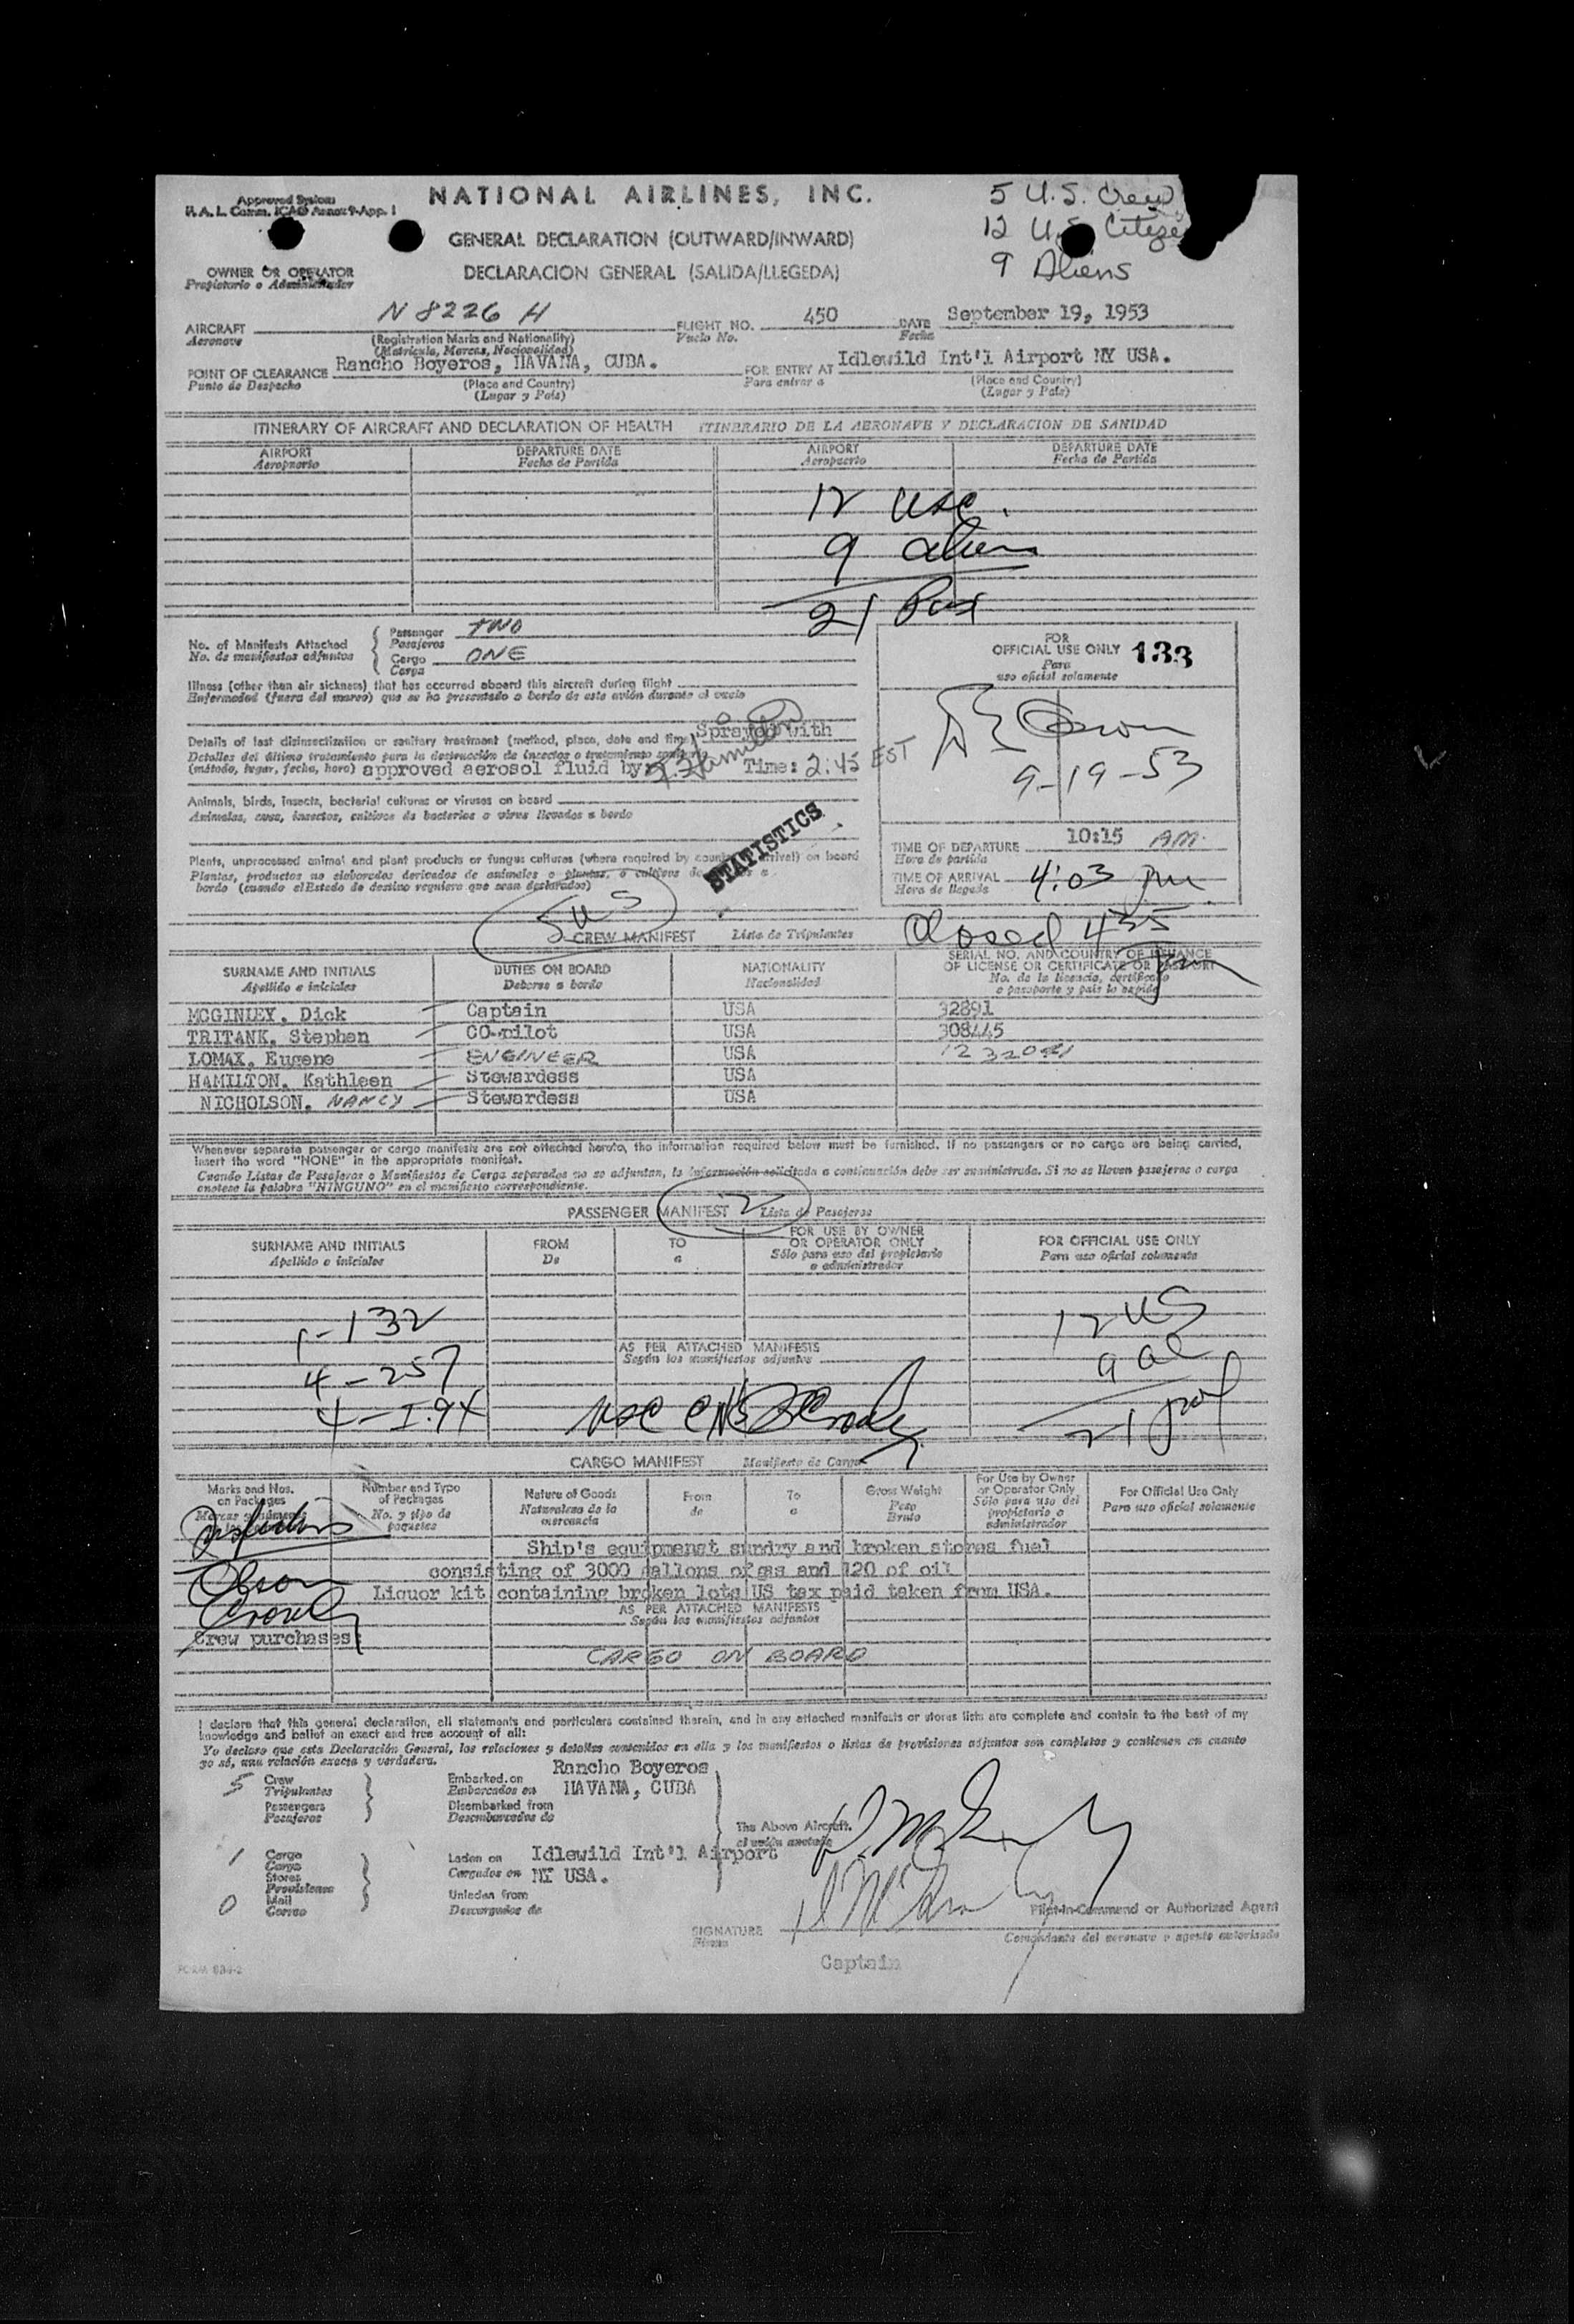 Approved System
N.A.L. Comm. ICAO Annex 9-App. 1
NATIONAL AIRLINES, INC.
5 U.S. Crew
12 U.S. Citize
9 Aliens
GENERAL DECLARATION (OUTWARD/INWARD)
DECLARACION GENERAL (SALIDA/LLEGEDA)
OWNER OR OPERATOR
Propietario o Administrador
AIRCRAFT N8226H FLIGHT NO. 450 DATE September 19, 1953
Aeronave (Registration Marks and Nationality) Vuelo No. Fecha
(Matricula, Marcas, Nacionalidad)
POINT OF CLEARANCE Rancho Boyeros, HAVANA, CUBA. FOR ENTRY AT Idlewild Int'l Airport NY USA.
Punto de Despacho (Place and Country) Para entrar a (Place and Country)
(Lugar y Pais) (Lugar y Pais)
ITINERARY OF AIRCRAFT AND DECLARATION OF HEALTH ITINERARIO DE LA AERONAVE Y DECLARACION DE SANIDAD
AIRPORT DEPARTURE DATE AIRPORT DEPARTURE DATE
Aeropuerto Fecha de Partida Aeropuerto Fecha de Partida
12 usc.
9 aliens
21 Pax
No. of Manifests Attached Passenger TWO
No. de manifiestos adjuntos Pasajeros
Cargo ONE
Carga
FOR
OFFICIAL USE ONLY 133
Para
uso oficial solamente
Illness (other than air sickness) that has occurred aboard this aircraft during flight
Enfermedad (fuera del mareo) que se ha presentado a bordo de este avión durante el vuelo
Details of last disinsectization or sanitary treatment (method, place, date and time) Sprayed with
Detalles del último tratamiento para la destrucción de insectos o tratamiento sanitario
(método, lugar, fecha, hora) approved aerosol fluid by: K. Hamilton Time: 2:45 EST
9-19-53
Animals, birds, insects, bacterial cultures or viruses on board
Animales, aves, insectos, cultivos de bacterias o virus llevados a bordo
STATISTICS
TIME OF DEPARTURE 10:15 AM.
Hora de partida
TIME OF ARRIVAL 4:03 pm
Hora de llegada
Plants, unprocessed animal and plant products or fungus cultures (where required by country of arrival) on board
Plantas, productos no elaborados derivados de animales o plantas, o cultivos de
bordo (cuando el Estado de destino requiere que sean declarados)
5 US
Closed 435 pm
CREW MANIFEST Lista de Tripulantes
SURNAME AND INITIALS DUTIES ON BOARD NATIONALITY SERIAL NO. AND COUNTRY OF ISSUANCE
OF LICENSE OR CERTIFICATE OR PASSPORT
Apellido e iniciales Deberes a bordo Nacionalidad No. de la licencia, certificado
o pasaporte y pais lo expide
MCGINLEY, Dick Captain USA 32891
TRITANK, Stephen CO-pilot USA 308445
LOMAX, Eugene ENGINEER USA 1232091
HAMILTON, Kathleen Stewardess USA
NICHOLSON, NANCY Stewardess USA
Whenever separate passenger or cargo manifests are not attached hereto, the information required below must be furnished. If no passengers or no cargo are being carried,
insert the word "NONE" in the appropriate manifest.
Cuando Listas de Pasajeros o Manifiestos de Carga separados no se adjuntan, la información solicitada a continuación debe ser suministrada. Si no se llevan pasajeros o carga
anotese la palabra "NINGUNO" en el manifiesto correspondiente.
PASSENGER MANIFEST 2 Lista de Pasajeros
SURNAME AND INITIALS FROM TO FOR USE BY OWNER OR OPERATOR ONLY FOR OFFICIAL USE ONLY
Apellido e iniciales De a Sólo para uso del propietario o administrador Para uso oficial solamente
1-132 12 US
AS PER ATTACHED MANIFESTS
Según los manifiestos adjuntos
4-257 9 al
4-I.94 21
CARGO MANIFEST Manifiesto de Carga
Marks and Nos. on Packages Number and Type of Packages Nature of Goods From To Gross Weight For Use by Owner or Operator Only For Official Use Only
No. y tipo de paquetes Naturaleza de la mercancia de a Peso Bruto Sólo para uso del propietario o administrador Para uso oficial solamente
Ship's equipmenst sundry and broken stores fuel
consisting of 3000 gallons of gas and 120 of oil
Liquor kit containing broken lots US tax paid taken from USA.
AS PER ATTACHED MANIFESTS
Según los manifiestos adjuntos
Crew purchases:
CARGO ON BOARD
I declare that this general declaration, all statements and particulars contained therein, and in any attached manifests or stores lists are complete and contain to the best of my
knowledge and belief an exact and true account of all:
Yo declaro que esta Declaración General, las relaciones y detalles contenidos en ella y los manifiestos o listas de provisiones adjuntos son completos y contienen en cuanto
yo sé, una relación exacta y verdadera.
5 Crew Embarked on Rancho Boyeros
Tripulantes Embarcados en HAVANA, CUBA
Passengers Disembarked from
Pasajeros Desembarcados de
The Above Aircraft.
el avión anotado
1 Cargo Laden on Idlewild Int'l Airport
Carga Cargados en NY USA.
Stores
Provisiones
0 Mail Unladen from
Correo Descargados de
Pilot-in-Command or Authorized Agent
SIGNATURE
Firma
Comandante del aeronave o agente autorizado
Captain
FORM 834-2